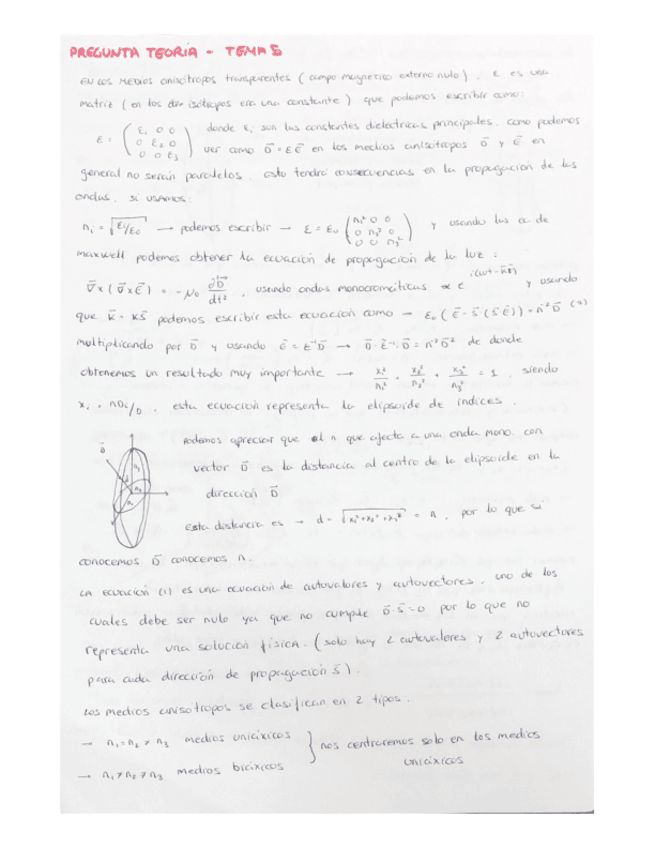 PREGUNTA TEORÍA - TEMA 5
EN LOS MEDIOS anisótropos transparentes (campo magnético externo nulo), ε es una
matriz (en los isótropos era una constante) que podemos escribir como:
ε = (ε₁ 0 0 / 0 ε₂ 0 / 0 0 ε₃) donde εᵢ son las constantes dieléctricas principales. como podemos
ver como D⃗ = εE⃗ en los medios anisótropos D⃗ y E⃗ en
general no serán paralelos. esto tendrá consecuencias en la propagación de las
ondas. si usamos:
nᵢ = √(εᵢ/ε₀) → podemos escribir → ε = ε₀ (n₁² 0 0 / 0 n₂² 0 / 0 0 n₃²) y usando las ec de
maxwell podemos obtener la ecuación de propagación de la luz:
∇⃗ × (∇⃗ × E⃗) = -μ₀ ∂²D⃗/dt², usando ondas monocromáticas ∝ e^i(ωt - k⃗r⃗) y usando
que k⃗ = k s⃗ podemos escribir esta ecuación como → ε₀ (E⃗ - s⃗ (s⃗ E⃗)) = n⁻² D⃗ (1)
multiplicando por D⃗ y usando E⃗ = ε⁻¹ D⃗ → D⃗ · ε⁻¹ · D⃗ = n⁻² D² de donde
obtenemos un resultado muy importante → x₁²/n₁² + x₂²/n₂² + x₃²/n₃² = 1, siendo
xᵢ = nDᵢ/D, esta ecuación representa la elipsoide de índices.
Podemos apreciar que el n que afecta a una onda mono. con
vector D⃗ es la distancia al centro de la elipsoide en la
dirección D⃗
Esta distancia es → d = √(x₁² + x₂² + x₃²) = n, por lo que si
conocemos D⃗ conocemos n.
LA ecuación (1) es una ecuación de autovalores y autovectores, uno de los
cuales debe ser nulo ya que no cumple D⃗ · s⃗ = 0 por lo que no
representa una solución física. (solo hay 2 autovalores y 2 autovectores
para cada dirección de propagación s⃗).
Los medios anisótropos se clasifican en 2 tipos.
→ n₁ = n₂ ≠ n₃ medios uniáxicos } nos centraremos solo en los medios
→ n₁ ≠ n₂ ≠ n₃ medios biáxicos uniáxicos